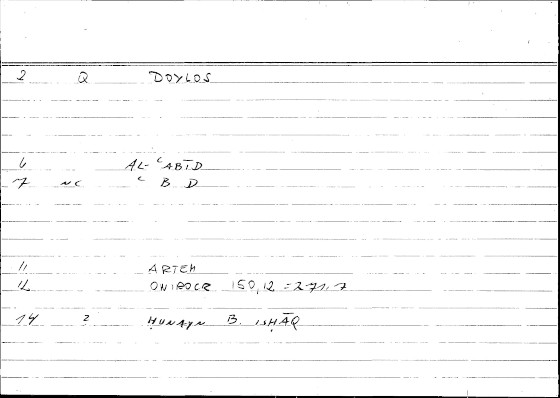 2 Q DOYLOS
6 AL-ʿABĪD
7 NC ʿ B D
11 ARTEM
12 ONIROCR 150,12 = 271,7
14 2 ḤUNAYN B. ISḤĀQ